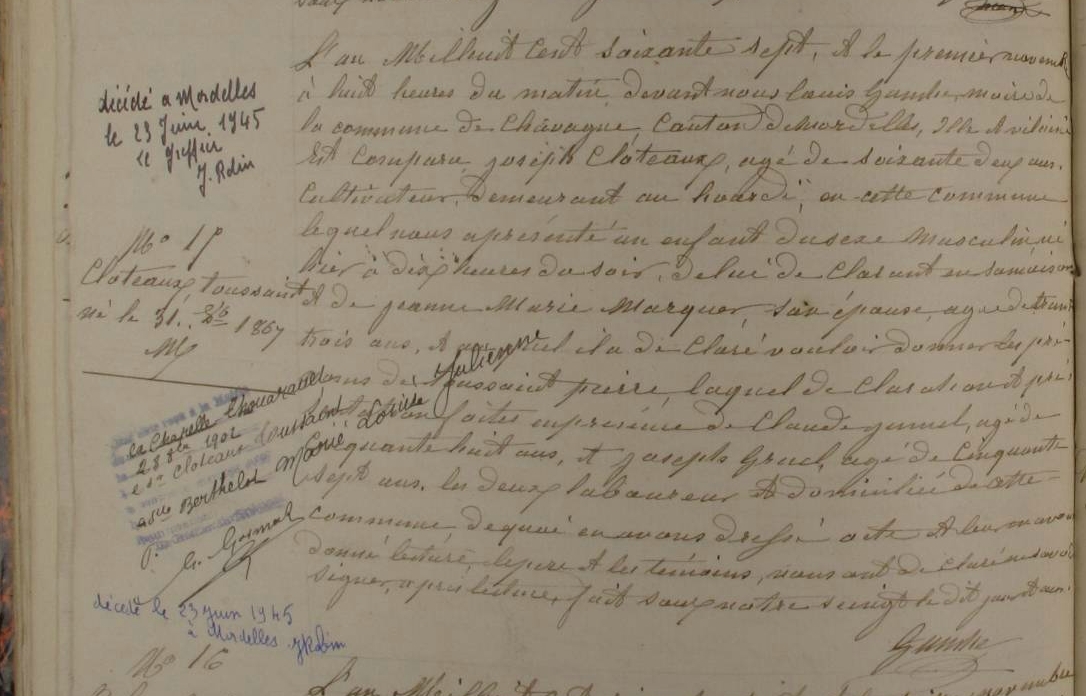 décédé a Mordelles
le 23 Juin 1945
le Greffier
J. Robin
No 15
Cloteaux toussaint
né le 31. 8bre 1867
L'an Mil huit Cent soixante sept, et le premier novembre
à huit heures du matin devant nous Louis Gandhe maire de
la commune de Chavagne, Canton de Mordelles, Ille et vilaine
Est Comparu joseph Cloteaux, agé de soixante deux ans,
Cultivateur, Demeurant au hourdé, en cette commune
lequel nous a présenté un enfant du sexe masculin né
hier à dix heures du soir, de lui de Clarant en sa maison
et de jeanne Marie Marquer, son épouse, agée de trente
trois ans, et auquel il a de Claré vouloir donner les pré-
noms de toussaint pierre laquel de Claration et pré
sentation faites en présence de Claude gruel, agé de
Cinquante huit ans, et joseph Gruel, agé de Cinquante
sept ans, les deux laboureur et domicilié de cette
commune de quoi en avons dressé acte et leur en avons
donné lecture, le pere et les témoins, nous ont de Claré ne savoir
signer, après lecture, fait sous notre seingt le dit jour et an.
Gandhe
la Chapelle Thouarault
28 8bre 1902
le sr Cloteaux toussaint
a dlle Berthelot Marie Louise Julienne
décédé le 23 juin 1945
à Mordelles JRobin
No 16
L'an Mil huit
novembre